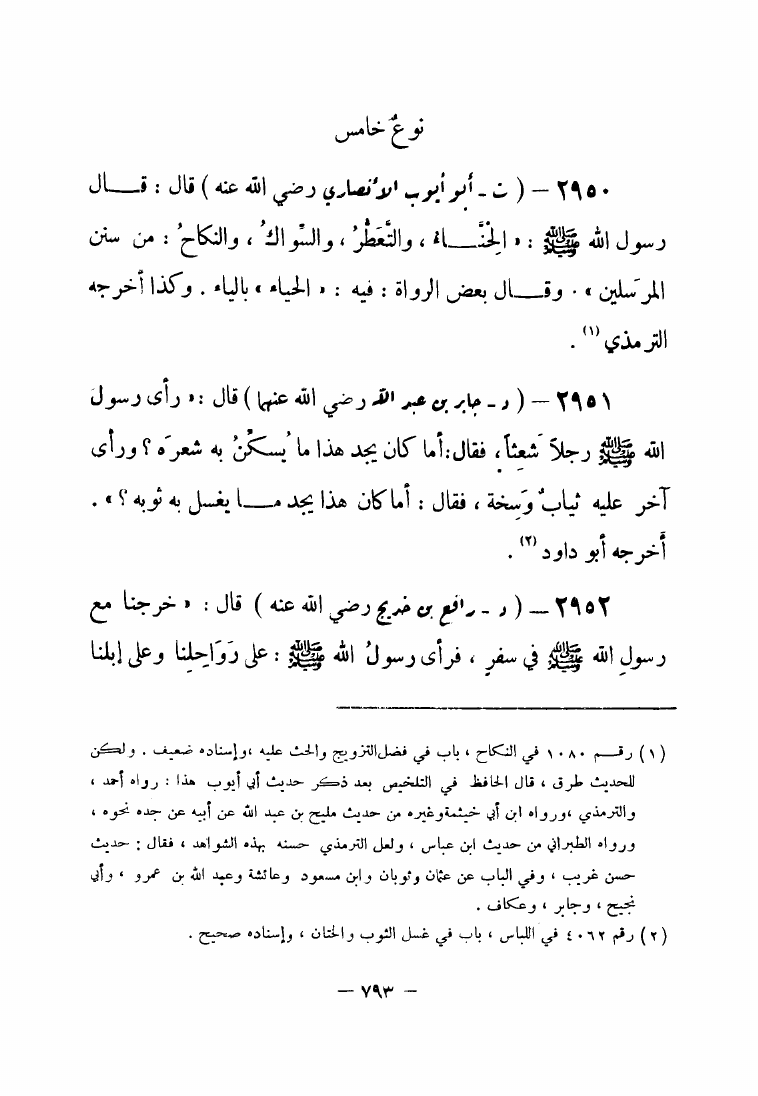 نوعٌ خامس
٢٩٥٠ — ( ت - أبو أيوب الأنصاري رضي الله عنه ) قال : قـــال
رسول الله ﷺ : « الِحْنَّـــاءُ ، والتَّعَطُّرُ ، والسِّواكُ ، والنكاحُ : من سنن
المرسَلين » . وقـــال بعض الرواة : فيه : « الحياء » بالياء . وكذا أخرجه
الترمذي (١) .
٢٩٥١ — ( د - جابر بن عبد الله رضي الله عنهما ) قال : « رأى رسولُ
الله ﷺ رجلاً شَعِثاً ، فقال : أما كان يجد هذا ما يُسكِّنُ به شعرَه ؟ ورأى
آخر عليه ثيابٌ وَسِخة ، فقال : أما كان هذا يجد مـــا يغسل به ثوبه ؟ » .
أخرجه أبو داود (٢) .
٢٩٥٢ — ( د - رافع بن خديج رضي الله عنه ) قال : « خرجنا مع
رسولِ الله ﷺ في سفرٍ ، فرأى رسولُ الله ﷺ : على رَوَاحِلِنا وعلى إبلنا
(١) رقـــم ١٠٨٠ في النكاح ، باب في فضل التزويج والحث عليه ، وإسناده ضعيف . ولكن
للحديث طرق ، قال الحافظ في التلخيص بعد ذكر حديث أبي أيوب هذا : رواه أحمد ،
والترمذي ، ورواه ابن أبي خيثمة وغيره من حديث مليح بن عبد الله عن أبيه عن جده نحوه ،
ورواه الطبراني من حديث ابن عباس ، ولعل الترمذي حسنه بهذه الشواهد ، فقال : حديث
حسن غريب ، وفي الباب عن عثمان وثوبان وابن مسعود وعائشة وعبد الله بن عمرو ، وأبي
نجيح ، وجابر ، وعكاف .
(٢) رقم ٤٠٦٢ في اللباس ، باب في غسل الثوب والختان ، وإسناده صحيح .
— ٧٩٣ —